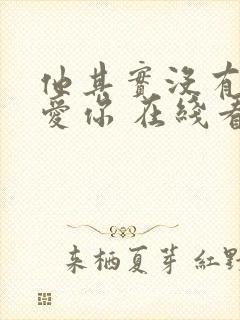 他其實沒有
愛你 在綫看
来栖夏芽 紅野